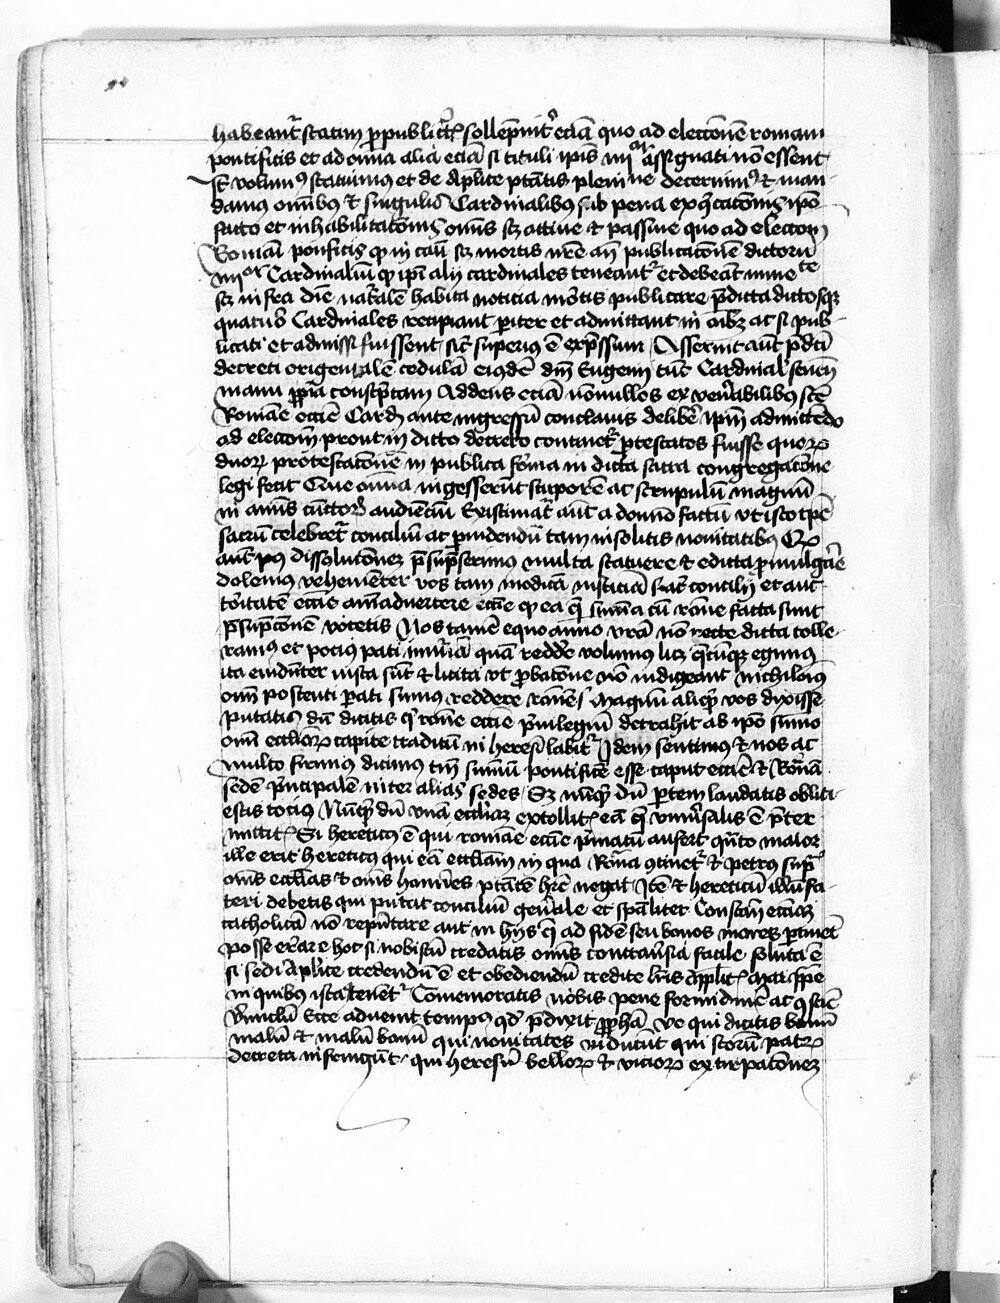 habeant᷑ statim ꝑ publicat̃ sollẽpnit᷑ eciã quo ad eleccõnẽ romani
pontificis et ad oĩa alia eciã si tituli ipĩs iiiiᵒʳ assignati nõ essent
Et volum⁹ statuimus et de aplice ptatis plenitudĩe decernim⁹ ⁊ man
damus om̃ibus ⁊ singulis Cardinalibus sub pena excõicatõnis ipõ
facto et inhabilitatõnis om̃is sc̃z actiue ⁊ passiue quo ad elecc̃om
Romani pontificis ꝙ in casu sc̃z mortis nr̃e an̄ publicatõnẽ dictorũ
iiiiᵒʳ Cardinaliũ ꝙ ip̃i alij cardinales teneant᷑ et debeãt immete
sc̃z infra diẽ nat᷑alẽ habita noticia mõtis publicare p̃dicta dictosqꝫ
quatuor Cardinales recipiant pariter et admittant in oĩbꝫ ac si pub
licati et admissi fuissent sic̃ superius ẽ exp̃ssum Asserunt aũt p̃dc̃i
decreti origenalẽ cedulã eiusdẽ dñi Eugenij tũc Cardinal̃ senen̄
manu ꝓpria conscp̃tam Addens eciã nõnullos ex ven̄abilibus sc̃e
Romane ecc̃ie Card̄ ante ingressũ conclauis deliberẽ ipm̃ admittẽdo
ad elecc̃om prout in dicto decreto continet᷑ ꝓtestatos fuisse quoꝝ
duoꝝ protestatõnẽ in publica forma in dicta sacra congregac̃one
legi fecit Que om̃ia ingesserũt stuporẽ ac scrupulũ magnũ
in animis cunctoꝝ audienciũ Existimat᷑ aũt a domĩo factũ vt isto tꝑe
sacrũ celebret᷑ conciliũ ac ꝓuidendũ tam insolitis nouitatibus Qꝫ
aũt post dissolutõneꝫ p̃sũpserimus multa statuere ⁊ edicta ꝓmulgare
dolemus vehemẽter vos tam modicã iusticiã sac̃ concilij et auc
toritatẽ ecc̃ie animaduertere ecc̃ie ꝙ ea q̃ summa cũ rõne facta sunt
p̃sũpcõnẽ vocetis Nos tamẽ equo animo vr̃a nõ recte dicta tolle
ramus et pocius pati iniuriã quã reddere volumus licꝫ q̃cũqꝫ egimus
ita euidẽter iusta sũt ⁊ licita vt ꝓbatõne nõ indigeant nichilomĩus
om̃i poscenti parati sumus reddere rõnẽ Magnũ aliqd̃ vos dixisse
putatis dũ dicitis qꝫ romãe ecc̃ie p̃uilegiũ detrahit ab ipõ summo
om̃i eccl̃iaꝝ capite traditũ in heresĩ labit᷑ Idem sentimus ⁊ nos ac
multo firmius dicimus tm̃ summũ pontificẽ esse caput ecc̃ie ⁊ Romanã
sedẽ p̃ncipalẽ inter alias sedes Sꝫ nũqd̃ dũ partem laudatis obliti
estis tocius Nũqd̃ dũ vnã eccl̃iaꝫ extollit᷑ ea q̃ vniu᷑salis ẽ p̃ter
mittit᷑ Si hereticus ẽ qui romãe ecc̃ie p̃matũ aufert q̃nto maior
ille erit hereticus qui eã eccl̃iam in qua Roma ꝯtinet᷑ ⁊ petrus sup̃
om̃is eccl̃ias ⁊ om̃is homines ptatẽ hr̃e negat Itẽ ⁊ hereticũ illũ fa
teri debetis qui putat conciliũ gen̄ale et spãliter Constañ eccl̃iaꝫ
catholicã nõ rep̃ntare aut in hijs q̃ ad fidẽ seu bonos mores ꝑtinet
posse errare hoc si nobiscũ credatis om̃is contrau᷑sia facile soluta ẽ
si sedi aplice credendũ ẽ et obediendũ credite lr̃is aplic̃ mar. ppe
in quibus ista tenet᷑ Comemoratis nobis pene formidinẽ ac ꝯsciẽ
v᷑miculũ Ecce aduenit tempus qd̃ p̃dixit ꝓpha Ve qui dicitis bonũ
malũ ⁊ malũ bonũ qui nouitates inducũt qui sc̃orũ patꝝ
decreta infringũt qui heresũ belloꝝ ⁊ vicioꝝ extirpatõneꝫ